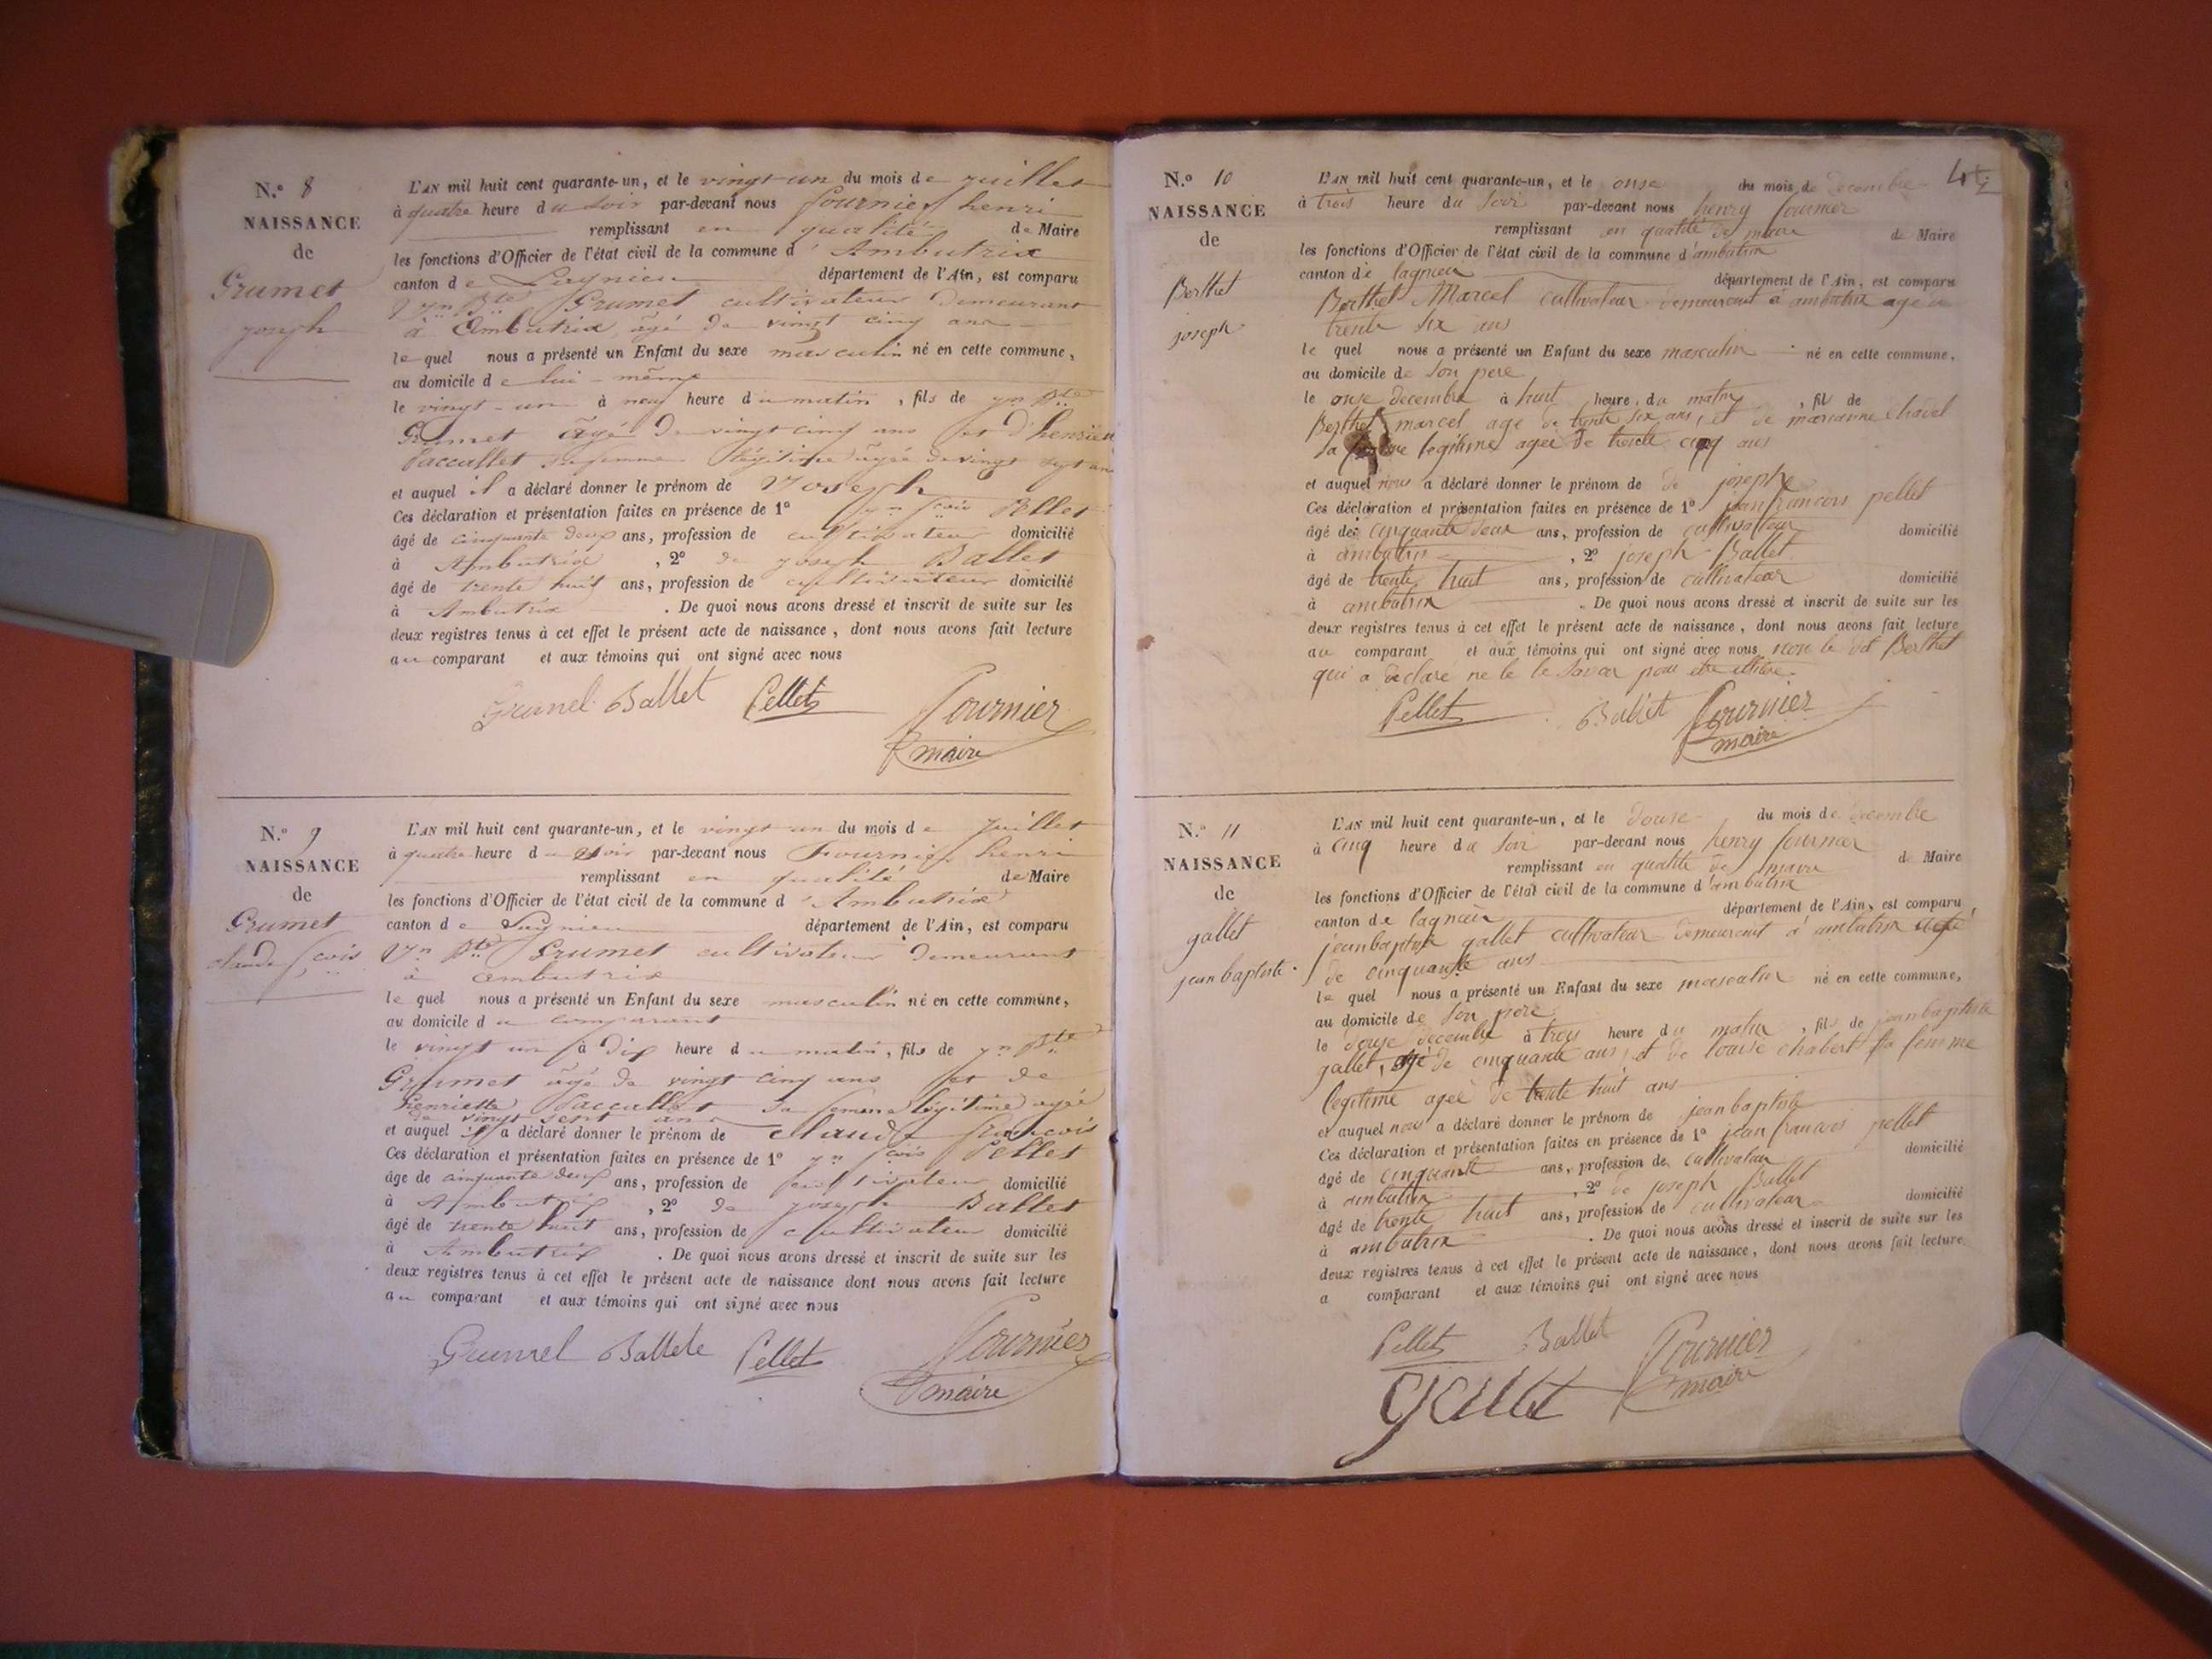 N.º 8
NAISSANCE
de
Grumet
joseph
L'AN mil huit cent quarante-un, et le vingt-un du mois de juillet
à quatre heure du soir par-devant nous fournier henri
remplissant en qualité de Maire
les fonctions d'Officier de l'état civil de la commune d'Ambutrix
canton de Lagnieu département de l'Ain, est comparu
Jn Bte Grumet cultivateur demeurant
à Ambutrix, âgé de vingt cinq ans
le quel nous a présenté un Enfant du sexe masculin né en cette commune,
au domicile de lui-même
le vingt-un à neuf heure du matin, fils de jn Bte
Grumet âgé de vingt cinq ans et d'henriette
Paccallet sa femme légitime âgée de vingt sept ans
et auquel il a déclaré donner le prénom de Joseph
Ces déclaration et présentation faites en présence de 1º jn fcois Pellet
âgé de cinquante deux ans, profession de cultivateur domicilié
à Ambutrix, 2º de joseph Ballet
âgé de trente huit ans, profession de cultivateur domicilié
à Ambutrix. De quoi nous avons dressé et inscrit de suite sur les
deux registres tenus à cet effet le présent acte de naissance, dont nous avons fait lecture
au comparant et aux témoins qui ont signé avec nous
Grumel Ballet Pellet Fournier
maire
N.º 9
NAISSANCE
de
Grumet
claude fcois
L'AN mil huit cent quarante-un, et le vingt-un du mois de juillet
à quatre heure du soir par-devant nous Fournier henri
remplissant en qualité de Maire
les fonctions d'Officier de l'état civil de la commune d'Ambutrix
canton de Lagnieu département de l'Ain, est comparu
Jn Bte Grumet cultivateur demeurant
à Ambutrix
le quel nous a présenté un Enfant du sexe masculin né en cette commune,
au domicile du comparant
le vingt un à dix heure du matin, fils de jn Bte
Grumet âgé de vingt cinq ans et de
henriette Paccallet sa femme légitime agée
de vingt sept ans
et auquel il a déclaré donner le prénom de claude françois
Ces déclaration et présentation faites en présence de 1º jn fcois Pellet
âge de cinquante deux ans, profession de cultivateur domicilié
à Ambutrix, 2º de joseph Ballet
âgé de trente huit ans, profession de cultivateur domicilié
à Ambutrix. De quoi nous avons dressé et inscrit de suite sur les
deux registres tenus à cet effet le présent acte de naissance dont nous avons fait lecture
au comparant et aux témoins qui ont signé avec nous
Grumel Ballete Pellet Fournier
maire
N.º 10
NAISSANCE
de
Berthet
joseph
L'AN mil huit cent quarante-un, et le onse du mois de decembre
à trois heure du soir par-devant nous henry fournier
remplissant en qualité de maire de Maire
les fonctions d'Officier de l'état civil de la commune d'ambutrix
canton de lagnieu département de l'Ain, est comparu
Berthet Marcel cultivateur demeurant à ambutrix agé de
trente six ans
le quel nous a présenté un Enfant du sexe masculin né en cette commune,
au domicile de son pere
le onse decembre à huit heure du matin, fil de
Berthet marcel age de trente six ans, et de marianne chavel
sa femme legitime agée de trente cinq ans
et auquel nous a déclaré donner le prénom de de joseph
Ces déclaration et présentation faites en présence de 1º jean francois pellet
âgé de cinquante deux ans, profession de cultivateur domicilié
à ambutrix, 2º joseph Ballet
âgé de trente huit ans, profession de cultivateur domicilié
à ambutrix. De quoi nous avons dressé et inscrit de suite sur les
deux registres tenus à cet effet le présent acte de naissance, dont nous avons fait lecture
au comparant et aux témoins qui ont signé avec nous non le dit Berthet
qui a declaré ne le le savoir pour etre illitere.
Pellet Ballet Fournier
maire
N.º 11
NAISSANCE
de
gallet
jean baptiste.
L'AN mil huit cent quarante-un, et le douse du mois de decembre
à cinq heure du soir par-devant nous henry fournier
remplissant en qualité de maire de Maire
les fonctions d'Officier de l'état civil de la commune d'ambutrix
canton de lagnieu département de l'Ain, est comparu
jean baptiste gallet cultivateur demeurant à ambutrix agé
de cinquante ans
le quel nous a présenté un Enfant du sexe masculin né en cette commune,
au domicile de son pere
le douse decembre à trois heure du matin, fil de jean baptiste
gallet, agé de cinquante ans, et de louise chabert sa femme
legitime agée de trente huit ans
et auquel nous a déclaré donner le prénom de jean baptiste
Ces déclaration et présentation faites en présence de 1º jean francois pellet
âgé de cinquante ans, profession de cultivateur domicilié
à ambutrix, 2º de joseph Ballet
âgé de trente huit ans, profession de cultivateur domicilié
à ambutrix. De quoi nous avons dressé et inscrit de suite sur les
deux registres tenus à cet effet le présent acte de naissance, dont nous avons fait lecture
a comparant et aux témoins qui ont signé avec nous
Pellet Ballet Fournier
gallet maire